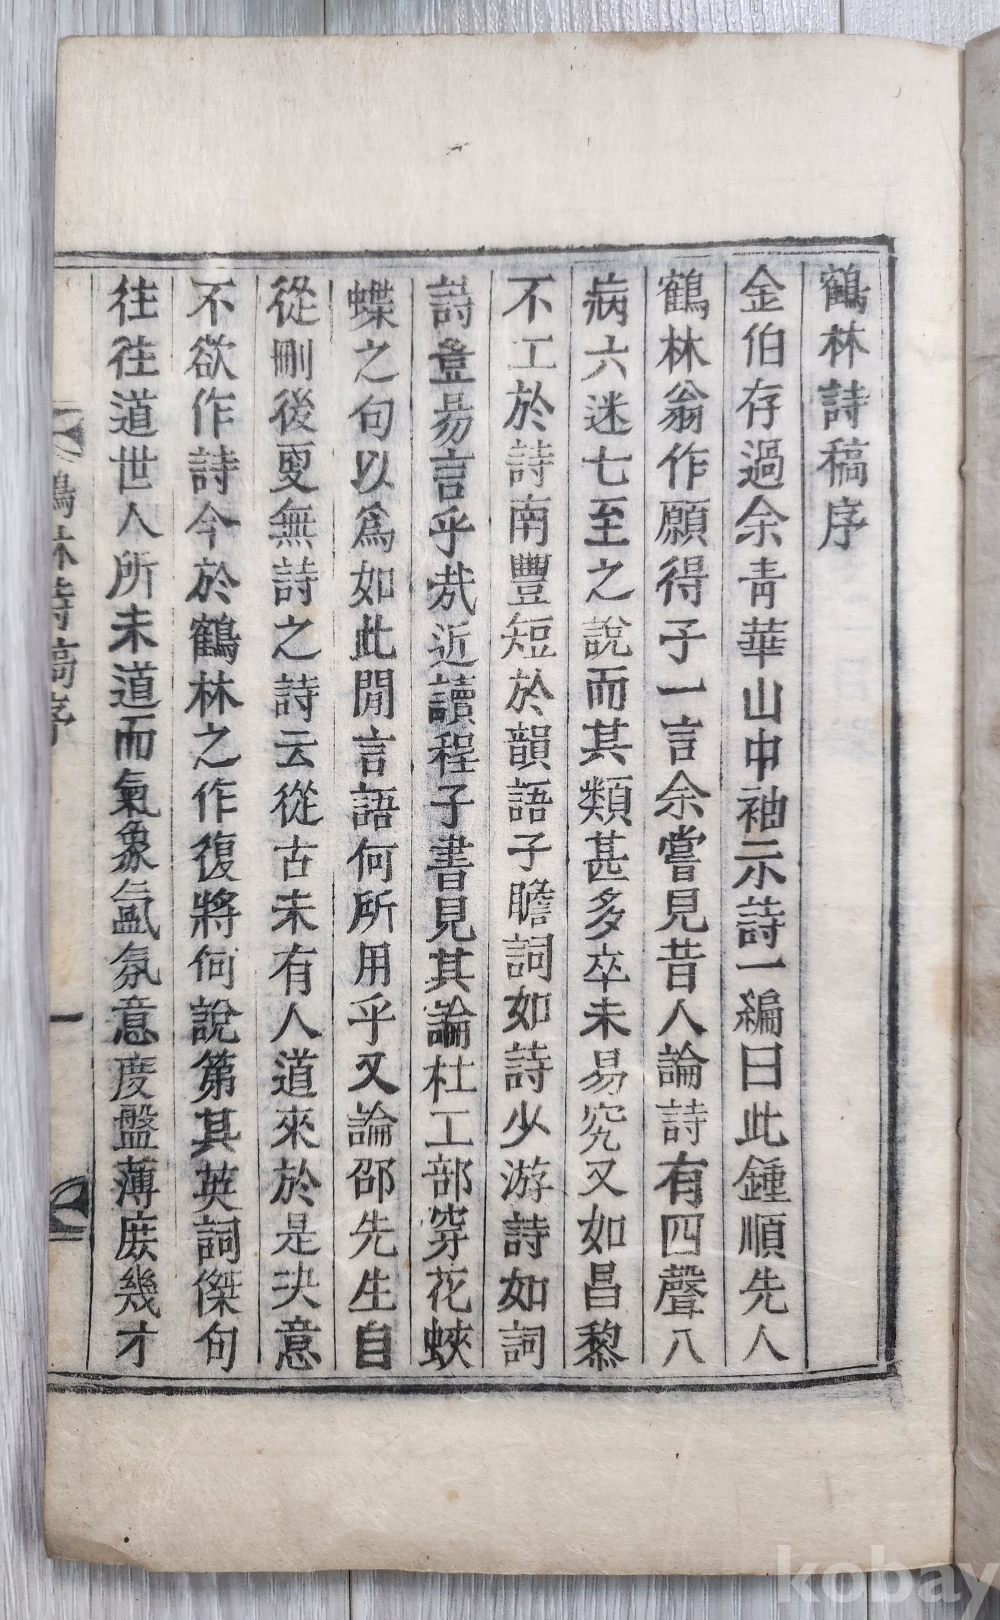 鶴林詩稿序
金伯存過余靑華山中袖示詩一編曰此鍾順先人
鶴林翁作願得子一言余嘗見昔人論詩有四聲八
病六迷七至之說而其類甚多卒未易究又如昌黎
不工於詩南豐短於韻語子瞻詞如詩少游詩如詞
詩豈易言乎哉近讀程子書見其論杜工部穿花蛺
蝶之句以爲如此閒言語何所用乎又論邵先生自
從刪後更無詩之詩云從古未有人道來於是決意
不欲作詩今於鶴林之作復將何說第其英詞傑句
徃徃道世人所未道而氣象氤氛意度盤薄庶幾才
鶴林詩稿序
一
kobay